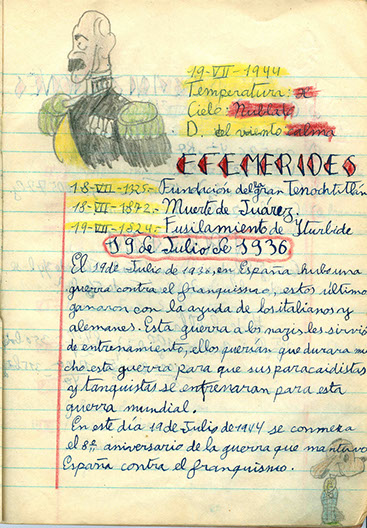 19-VII-1944
Temperatura: x
Cielo: Nublay
D. del viento calma
EFEMERIDES
18-VII-1325.- Fundición del gran Tenochtitlán
18-VII-1872.- Muerte de Juárez.
19-VII-1824.- Fusilamiento de Yturbide
19 de Julio de 1936
El 19 de Julio de 1936, en España hubo una
guerra contra el franquismo, estos últimos
ganaron con la ayuda de los italianos y
alemanes. Esta guerra a los nazis les sirvió
de entrenamiento, ellos querían que durara mu
cho esta guerra para que sus paracaidistas
y tanquistas se entrenaran para esta
guerra mundial.
En este día 19 de Julio de 1944 se conmera
el 8º aniversario de la guerra que mantuvo
España contra el franquismo.